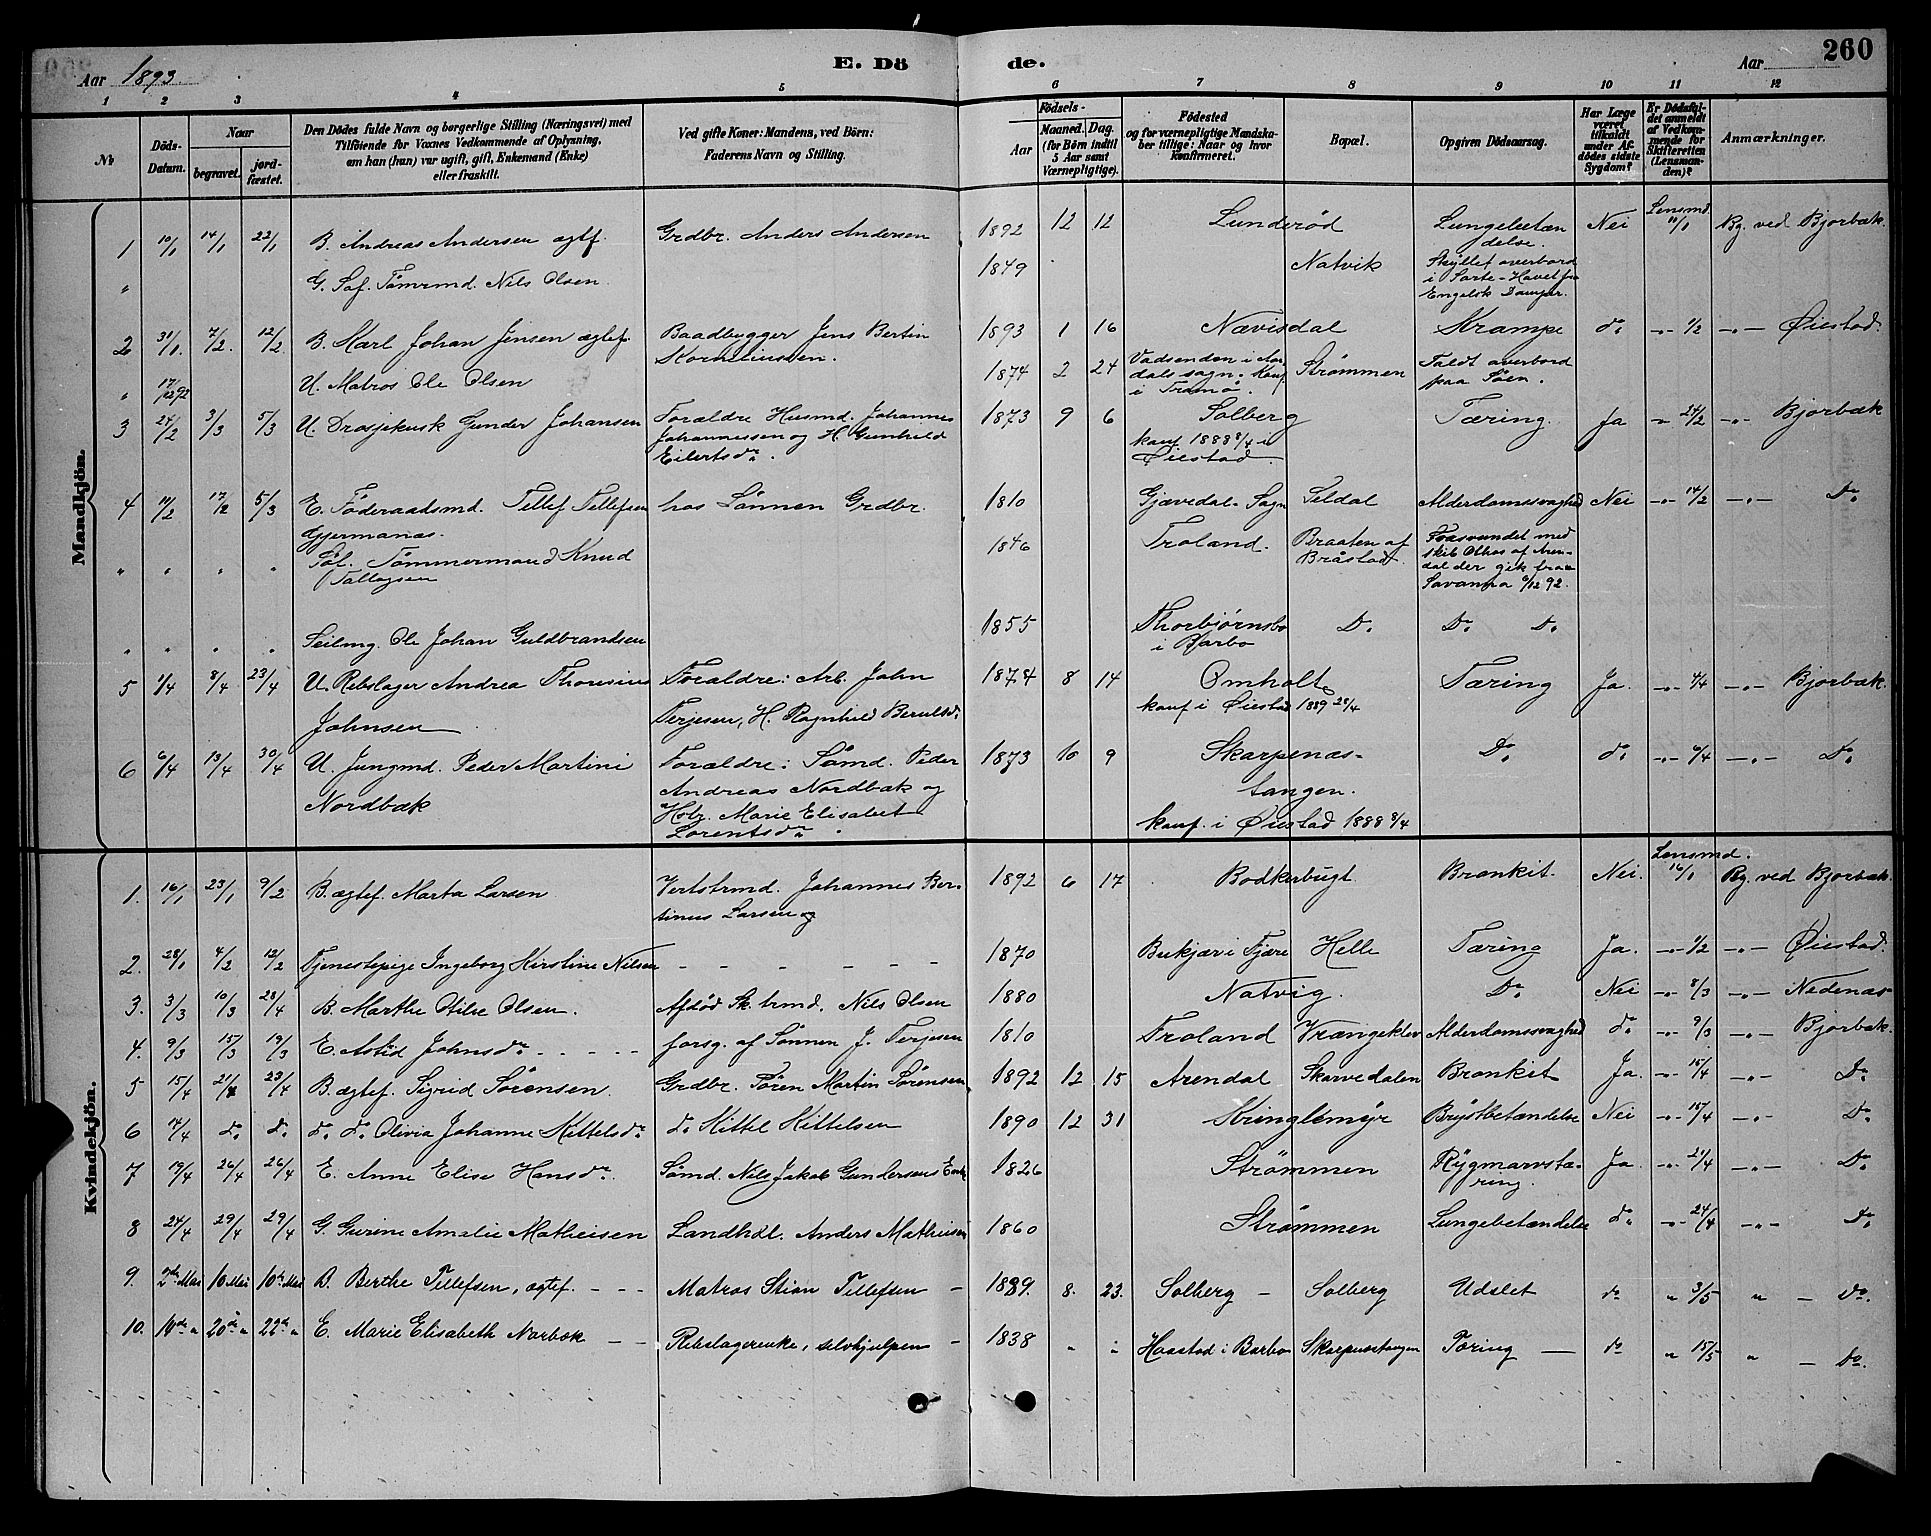 Aar 1893.
E. Dö de.
Aar
260
1 2 3 4 5 6 7 8 9 10 11 12
№
Döds-Datum.
Naar
begravet.
jord-fæstet.
Den Dödes fulde Navn og borgerlige Stilling (Næringsvei) med
Tilföiende for Voxnes Vedkommende af Oplysning,
om han (hun) var ugift, gift, Enkemand (Enke)
eller fraskilt.
Ved gifte Koner: Mandens, ved Börn:
Faderens Navn og Stilling.
Födsels-
Aar
Maaned. Dag.
(for Börn indtil
5 Aar samt
Værnepligtige).
Födested
og for værnepligtige Mandska-
ber tillige: Naar og hvor
konfirmeret.
Bopæl.
Opgiven Dödsaarsag.
Har Læge
været
tilkaldt
under Af-
dödes sidste
Sygdom?
Er Dödsfal-
det anmeldt
af Vedkom-
mende for
Skifteretten
(Lensman-
den)?
Anmærkninger.
Mandkjön.
1 10/1 14/1 22/1 B. Andreas Andersen ægtf. Grdbr. Anders Andersen 1892 12 12 Lunderød Lungebetæn
delse. Nei Lensmd. 11/1 Bg. ved Bjorbæk.
" G. Søf. Tømrmd. Nils Olsen. 1849 Natvik Skyllet overbord
i Sorte-Havet fra
Engelsk Dampsk.
2 31/1 7/2 12/2 B. Karl Johan Jensen ægtef. Baadbygger Jens Bertin
Korneliussen. 1893 1 16 Nævisdal Krampe do -"- 1/2 -"- Øiestad.
" 17/12 92 U. Matros Ole Olsen 1874 2 24 Vadsenden i Aar
dals sogn. Konf
i Tromø. Strømmen Faldt overbord
paa Søen.
3 24/2 3/3 5/3 U. Drosjekusk Gunder Johansen Forældre Husmd. Johannes
Johannessen og H. Gunhild
Eilertsdr. 1873 9 6 Solberg
konf. 1888 8/4 i
Øiestad. Tæring. Ja " 24/2 -"- Bjorbæk
4 11/2 17/2 5/3 E. Føderaadsmd. Tellef Tellefsen
Gjermanæs. hos Sønnen Grdbr. 1810 Gjævedal-Sogn Seldal Alderdomssvaghed Nei -"- 14/2 -"- Do
" " " " Søf. Tømmermand Knud
Tallagsen 1846 Froland. Braaten af
Bråstad. Forsvundet med
skib Athos af Aren-
dal der gik fra
Savanna 6/12 92.
" " " " Seilmg. Ole Johan Guldbrandsen 1855 Thorbjørnsbo
i Barbo Do Do Do
5 1/4 8/4 23/4 U. Rebslager Andrea Thoresius
Johnsen Forældre: Arb. John
Terjesen, H. Ragnhild Berultsdr 1874 8 14 Omholt
konf i Øiestad 1889 28/4 Tæring Ja. -"- 4/4 -"- Bjorbæk.
6 6/4 13/4 30/4 U. Jungmd. Peder Martini
Nordbæk Forældre: Sømd. Peder
Andreas Nordbæk og
Marie Elisabet
Lorentsdr. 1873 10 9 Skarpenæs-
tangen.
konf. i Øiestad 1888 8/4 Do do -"- 6/4 -"- Do
Kvindekjön.
1. 16/1 23/1 9/2 B. ægtef. Marta Larsen Johannes Ber-
tinus Larsen og 1892 6 17 Bodkerbugt Bronkit. Nei. Lensmd. 16/1 Bg. ved Bjorbæk.
2. 28/1 4/2 12/2 Tjenestepige Ingeborg Kirstine Nilsen - - - - - - 1870 Bukjær i Fjære Helle Tæring Ja. -"- 1/2 -"- Øiestad.
3. 3/3 10/3 28/4 B. Marthe Otilie Olsen. Afdød Sk.tmd. Nils Olsen 1880 Natvig. Do Nei -"- 8/3 -"- Nedenæs
4. 9/3 15/3 19/3 E. Astid Johnsdr. - - - - forsg. af Sønnen J. Terjesen 1810 Froland Vrængeklev Alderdomssvaghed do -"- 9/3 -"- Bjorbæk.
5 15/4 21/4 23/4 B. ægtef. Sigrid Sørensen. Grdbr. Søren Martin Sørensen 1892 12 15 Arendal Skarvedalen Bronkit Ja. -"- 15/4 -"- Do
6 14/4 do do do do Olivia Johanne Kittelsdr do Kittel Kittelsen 1890 12 31 Kringlemyr Brystbetændelse Nei -"- 15/4 -"- Do
7 19/4 26/4 26/4 E. Anne Elise Hansdr. Sømd. Nils Jakob Gundersens Enke 1826 Strømmen Rygmarvstæ-
ring. Ja -"- 21/4 -"- Do
8 24/4 29/4 29/4 G. Gurine Amalie Mathiesen Landhdl. Anders Mathiesen 1860 Strømmen Lungebetændelse do -"- 24/4 -"- Do
9. 2den Mai 10 Mai 10de Mai B. Berthe Tellefsen, ægtef. - - - Matros Stian Tellefsen - 1889. 8. 23. Solberg - Solberg Udslet do " 3/5 " - Do.
10. 14de " 20de " 22de " E. Marie Elisabeth Norbæk - - Rebslagerenke, selvhjulpen - 1838 " " Haastad i Barbo Skarpnestangen Tæring - do " 15/5 " - Do.